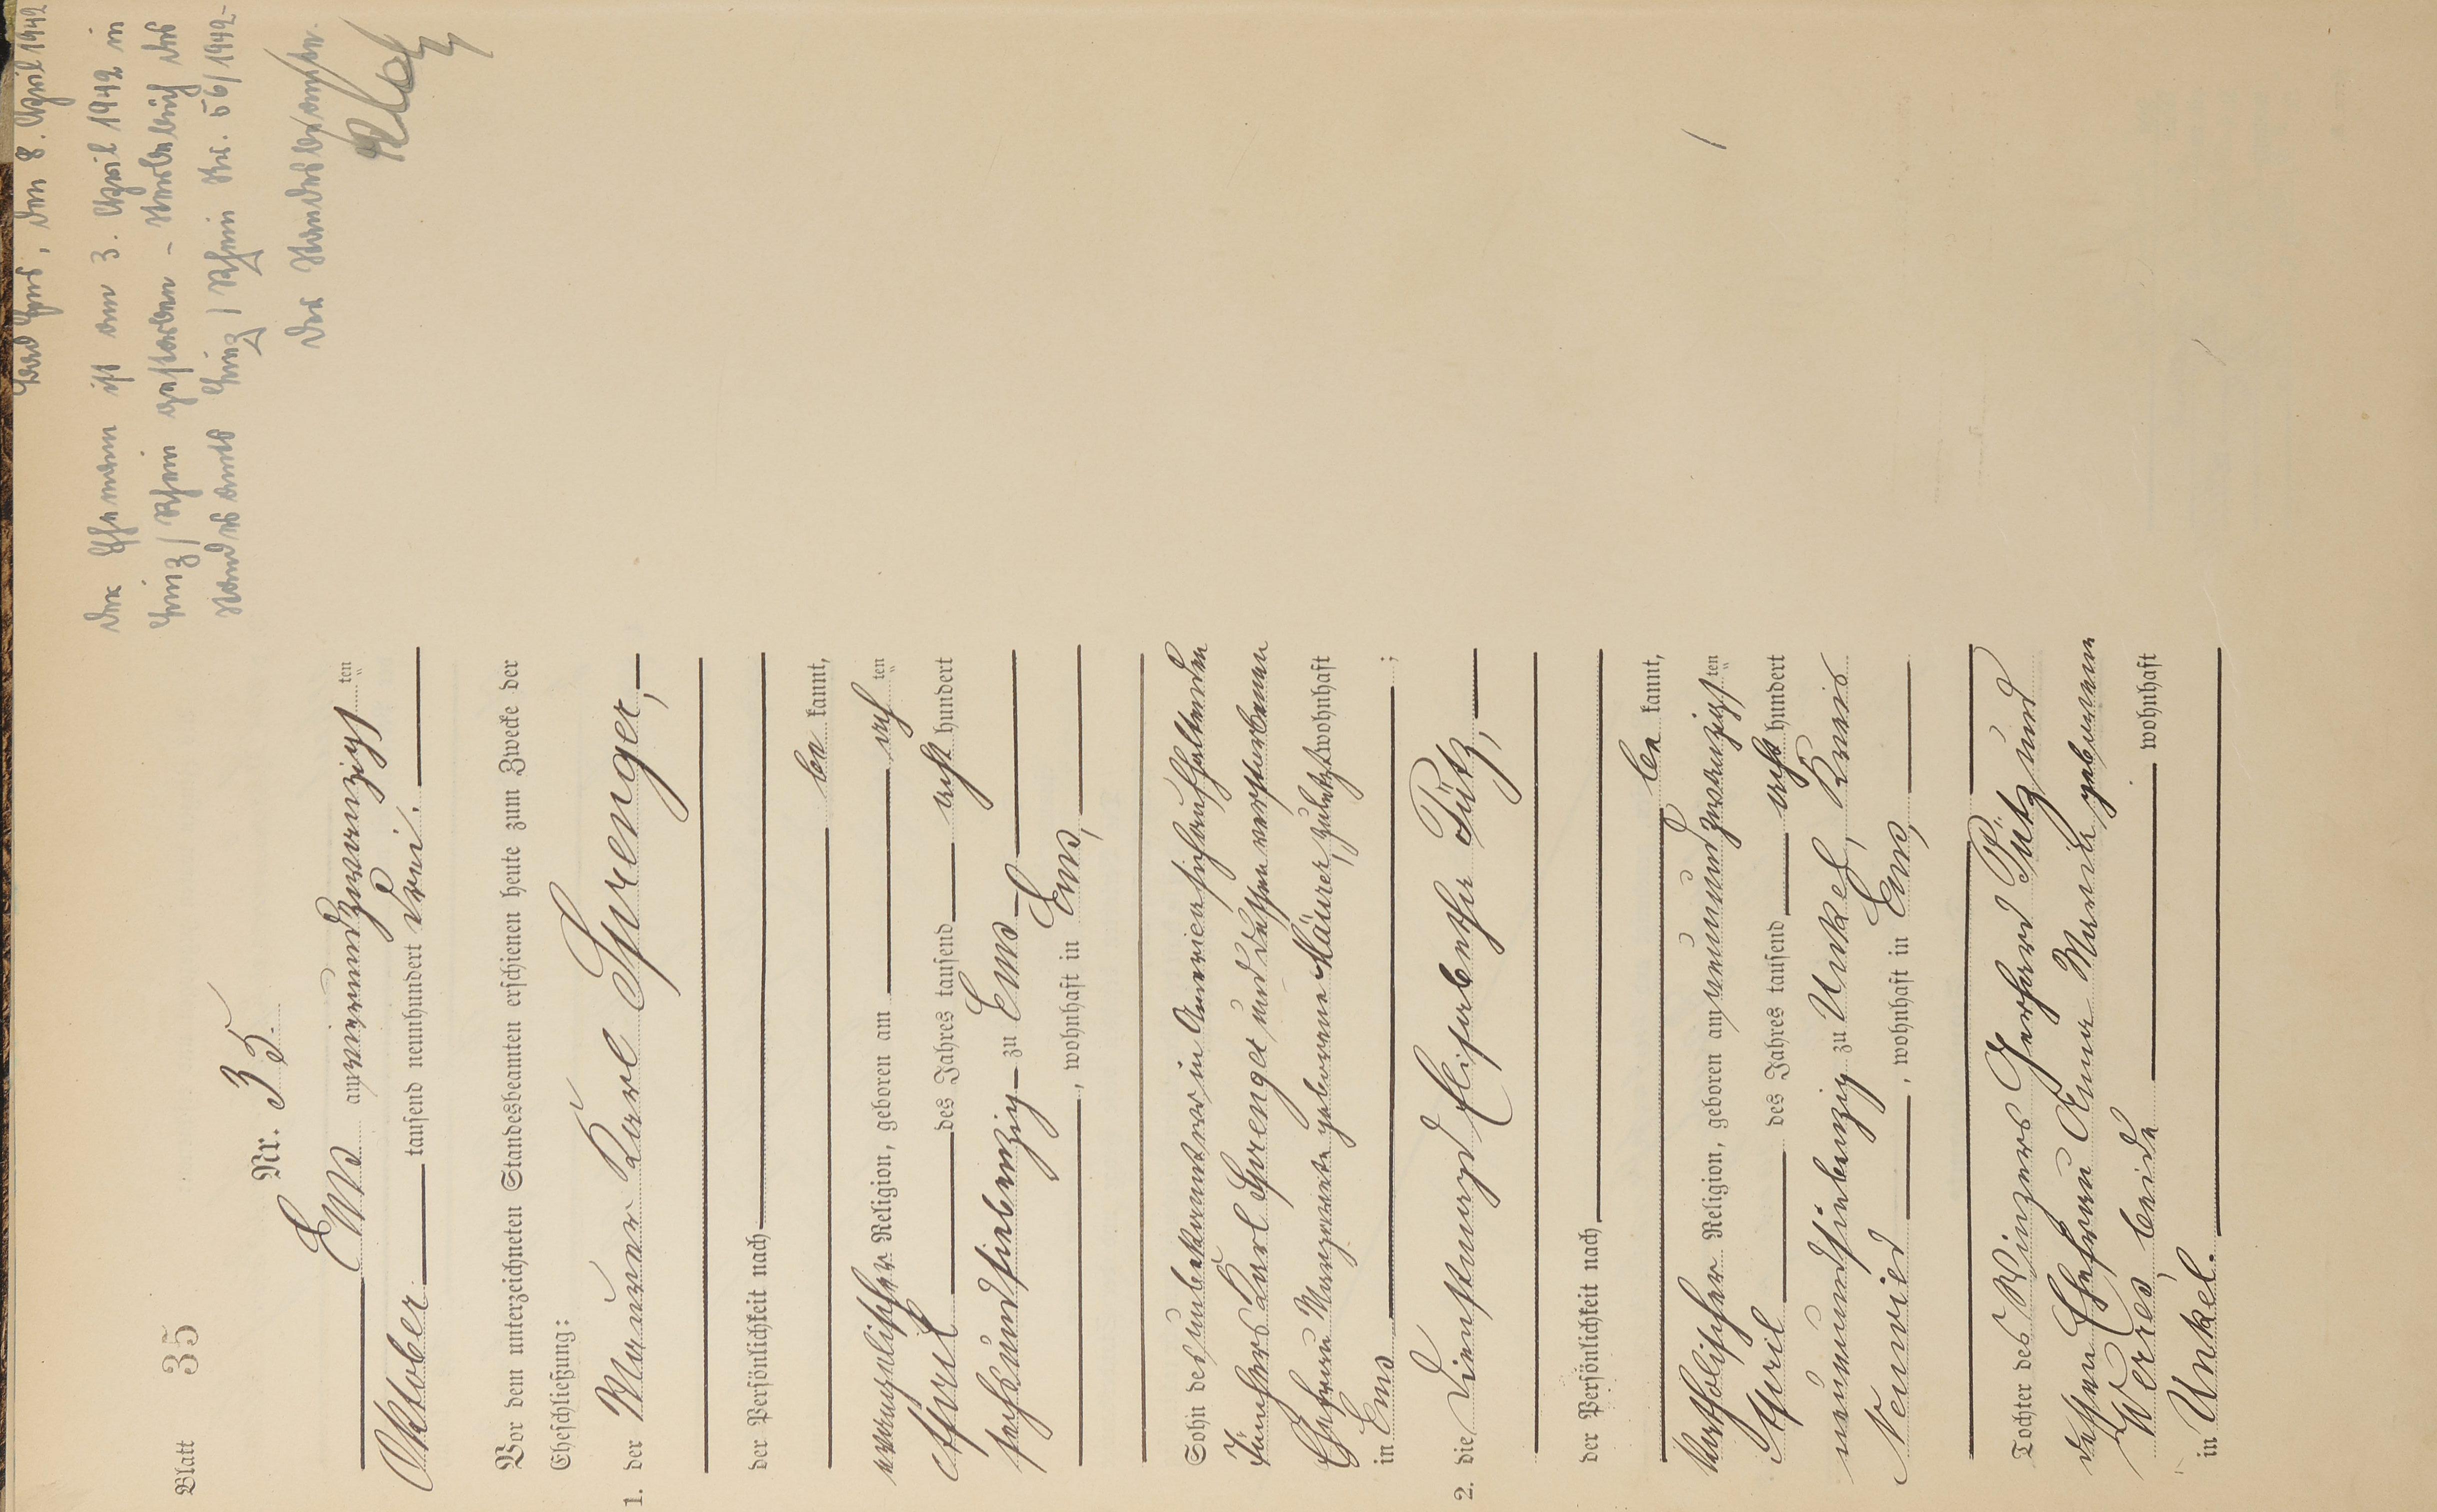 Bad Ems, den 8. April 1942
Der Ehemann ist am 3. April 1942 in
Linz/Rhein gestorben - Sterbebuch des
Standesamts Linz/Rhein Nr. 56/1942-
Der Standesbeamte.
Blatt 35
Nr. 35.
Ems am vierundzwanzigsten
Oktober tausend neunhundert drei.
Vor dem unterzeichneten Standesbeamten erschienen heute zum Zwecke der
Eheschließung:
1. der Maurer Karl Sprenger,
der Persönlichkeit nach
be kannt,
evangelischer Religion, geboren am achten
April des Jahres tausend acht hundert
sechsundsiebenzig zu Ems
, wohnhaft in Ems,
Sohn des unbekannt wo in Amerika sich aufhaltenden
Karl Sprenger und dessen verstorbenen
Ehefrau Margarete geborene Mäurer, zuletzt wohnhaft
in Ems ;
2. die Dienstmagd Elisabetha Pütz,
der Persönlichkeit nach
be kannt,
katholischer Religion, geboren am neunundzwanzigsten
April des Jahres tausend acht hundert
neunundsiebenzig zu Unkel, Kreis
Neuwied , wohnhaft in Ems,
Tochter des Winzers Gerhard Pütz und
dessen Ehefrau Anna Maria geborenen
Weres, beide wohnhaft
in Unkel.